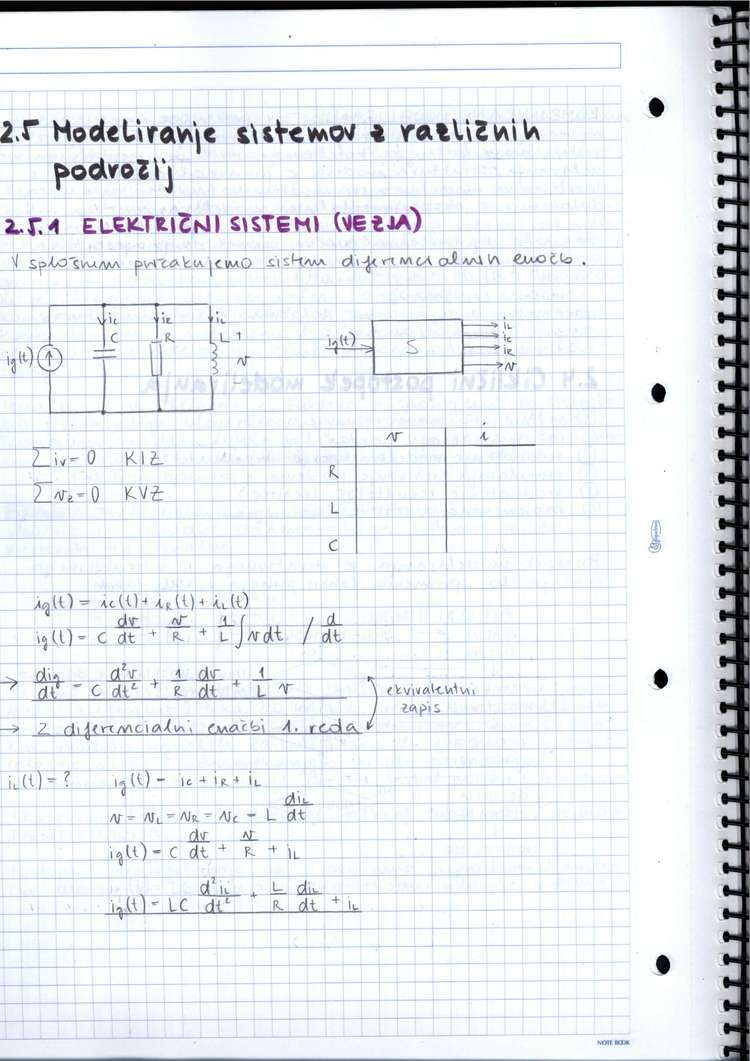 2.5 Modeliranje sistemov z različnih
področij
2.5.1 ELEKTRIČNI SISTEMI (VEZJA)
V splošnem pričakujemo sistem diferencialnih enačb.
ig(t) iC C iR R iL L + v -
ig(t) S iL iC iR v
v i
R
L
C
∑ iv = 0 KIZ
∑ vz = 0 KVZ
ig(t) = ic(t) + iR(t) + iL(t)
ig(t) = C dv/dt + v/R + 1/L ∫ v dt / d/dt
→ dig/dt = C d²v/dt² + 1/R dv/dt + 1/L v
ekvivalentni
zapis
→ 2 diferencialni enačbi 1. reda
iL(t) = ? ig(t) = ic + iR + iL
v = vL = vR = vC = L diL/dt
ig(t) = C dv/dt + v/R + iL
ig(t) = LC d²iL/dt² + L/R diL/dt + iL
NOTE BOOK